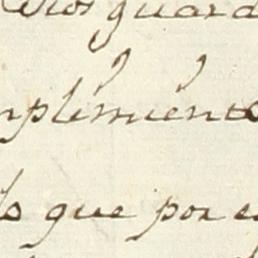 Dios guard
mplemient
lo que por e